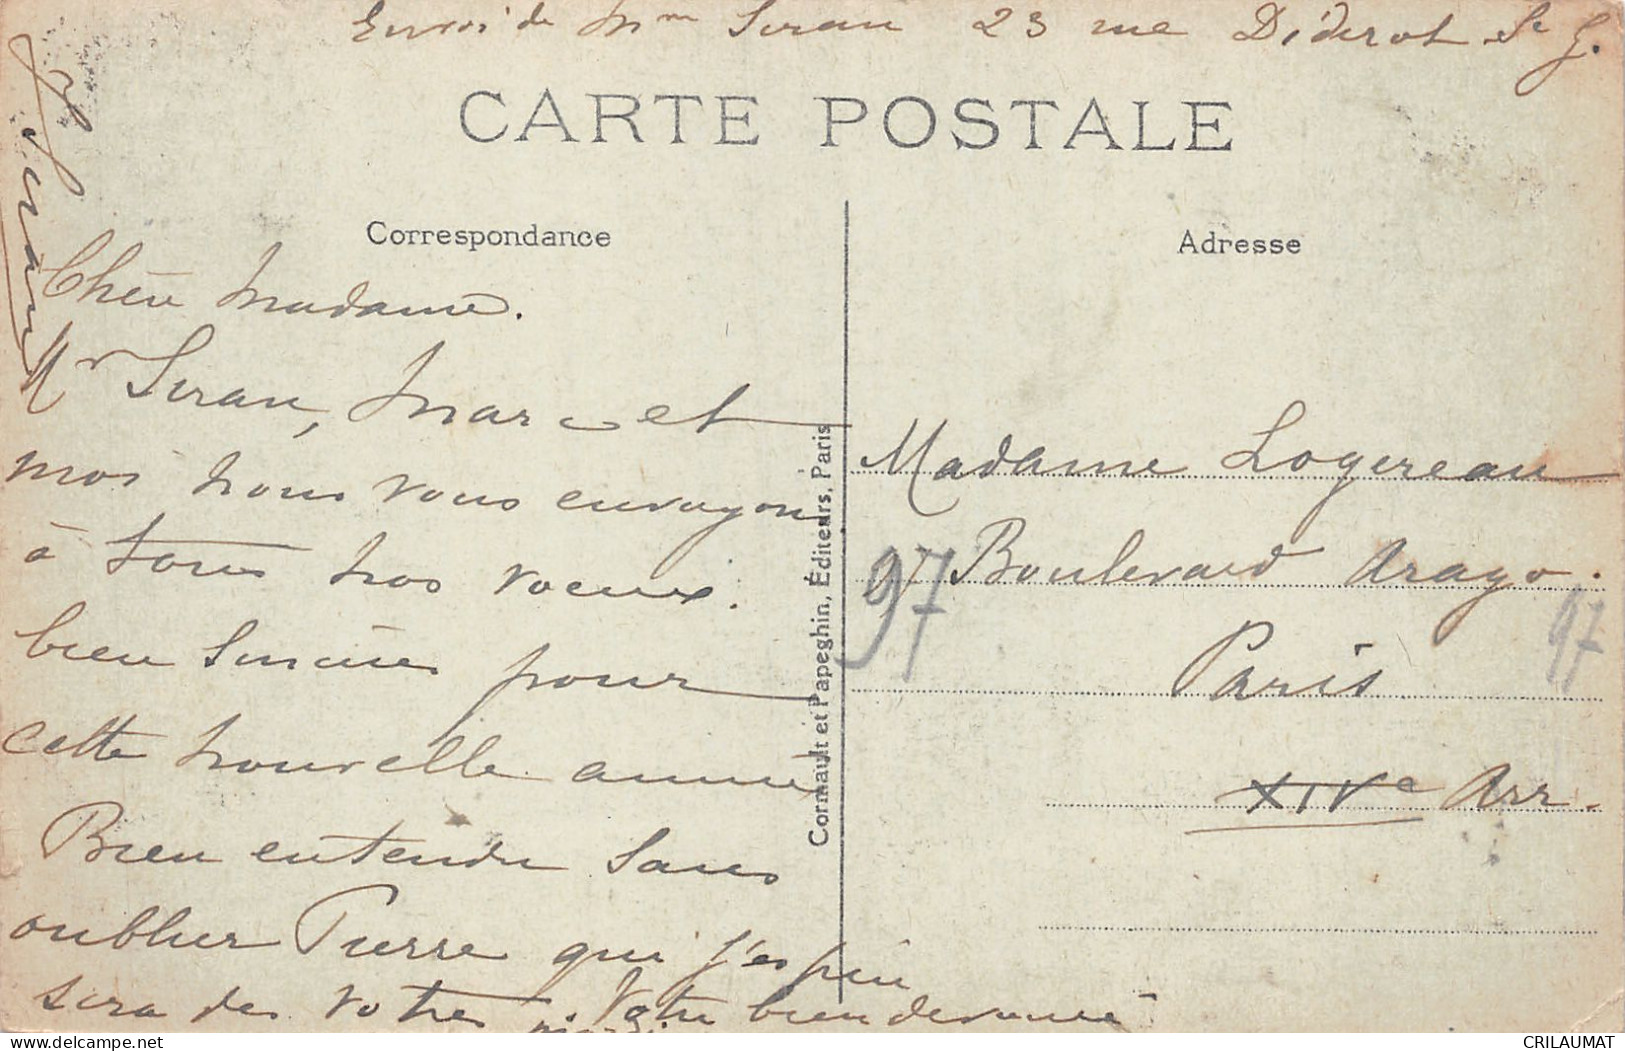 Envoi de Mme Seran 23 rue Diderot St G.
CARTE POSTALE
Correspondance
Adresse
Chère Madame.
Mr Seran, Marc et
moi nous vous envoyons
à tous nos voeux.
bien sincères pour
cette nouvelle année
Bien entendu sans
oublier Pierre qui j'espère
sera des votres. Votre bien devouée
J. Seran
Cormault et Papeghin, Éditeurs, Paris
Madame Logereau
97 Boulevard Arago.
97
Paris
XIVe Arr.
CRILAUMAT